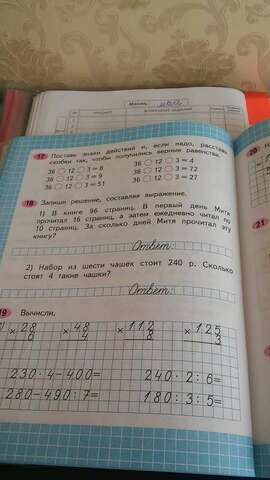 Месяц май
17 Поставь знаки действий и, если надо, расставь
скобки так, чтобы получились верные равенства.
36 ○ 12 ○ 3 = 8 36 ○ 12 ○ 3 = 4
36 ○ 12 ○ 3 = 9 36 ○ 12 ○ 3 = 72
36 ○ 12 ○ 3 = 51 36 ○ 12 ○ 3 = 27
18 Запиши решение, составляя выражение.
1) В книге 96 страниц. В первый день Митя
прочитал 16 страниц, а затем ежедневно читал по
10 страниц. За сколько дней Митя прочитал эту
книгу?
Ответ:
2) Набор из шести чашек стоит 240 р. Сколько
стоят 4 такие чашки?
Ответ:
19 Вычисли.
× 28 × 48 × 112 × 125
6 4 8 3
230·4-400= 240:2:6=
280-490:7= 180:3:5=
20
21